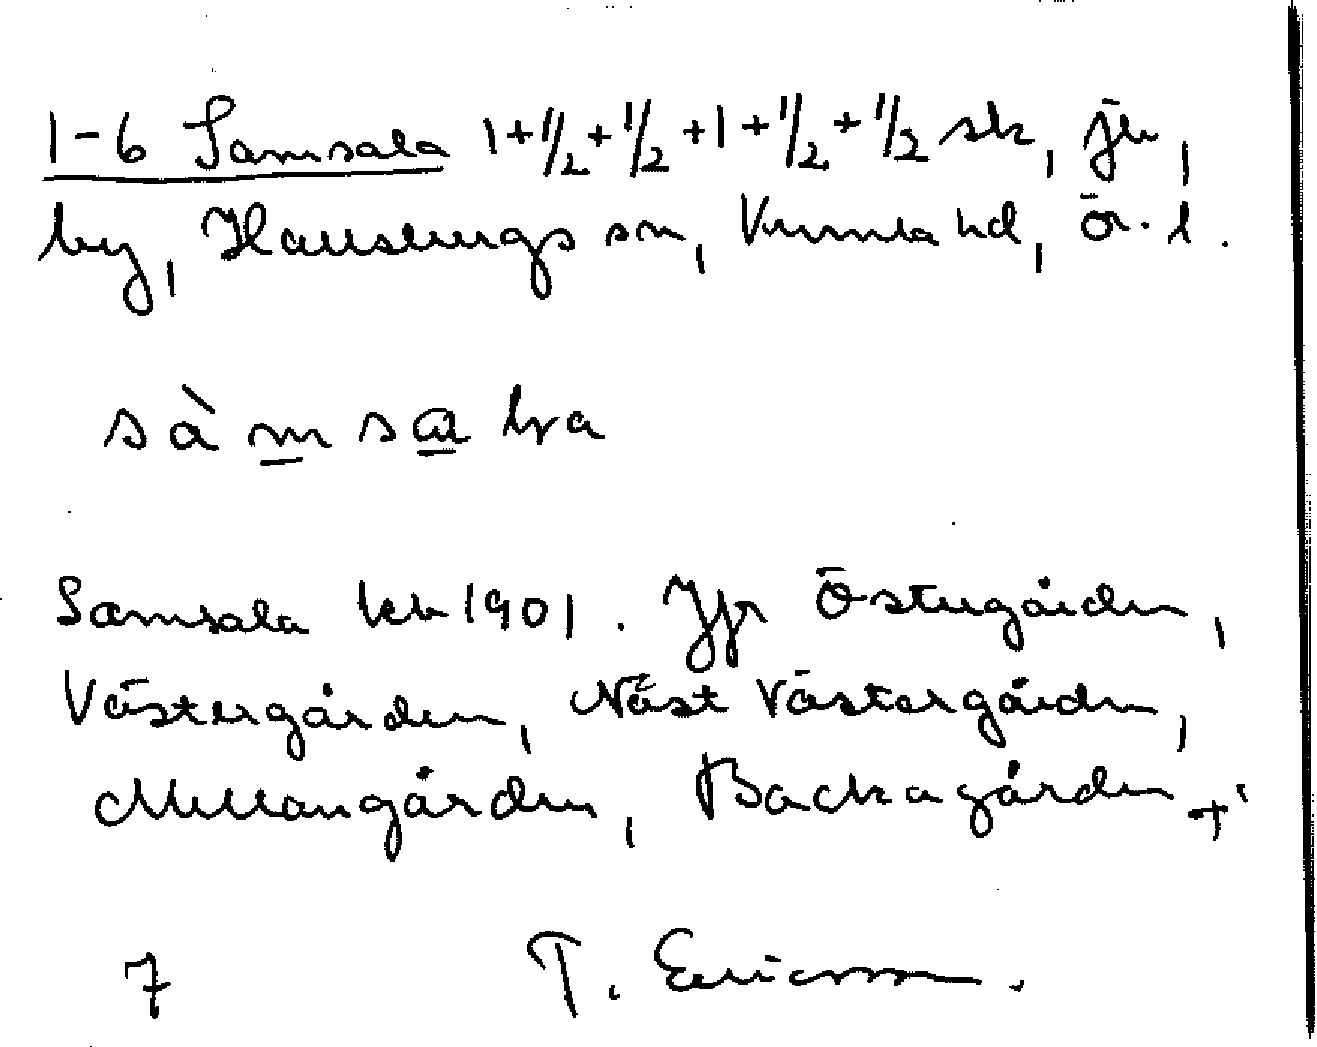 1-6 Samsala 1+1/2+1/2+1+1/2+1/2 sk, jb,
by, Hallsbergs sn, Kumla hd, Ör. l.
sà m s a
Samsala kb 1901. Jfr Östergården,
Västergården, Näst Västergården,
Mellangården, Backagården +
7 T. Ericsson.